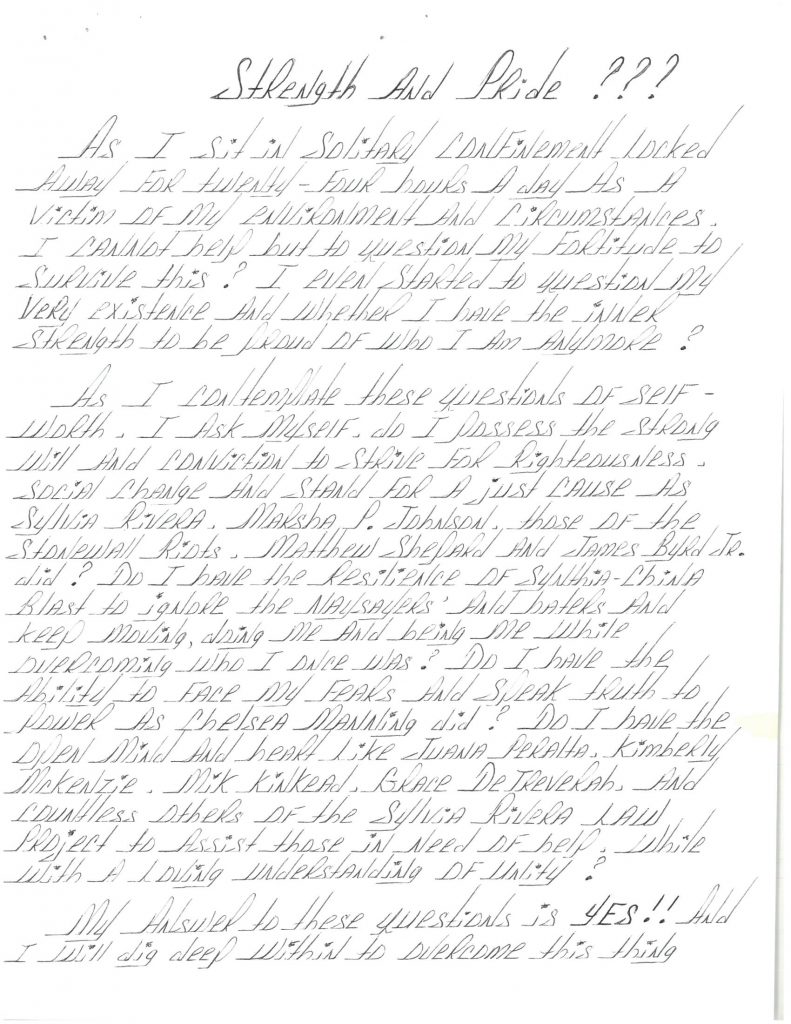 Strength And Pride ???
As I sit in solitary confinement locked
away for twenty-four hours a day as a
victim of my environment and circumstances.
I cannot help but to question my fortitude to
survive this? I even started to question my
very existence and whether I have the inner
strength to be proud of who I am anymore?
As I contemplate these questions of self-
worth. I ask myself, do I possess the strong
will and conviction to strive for righteousness,
social change and stand for a just cause as
Sylvia Rivera, Marsha P. Johnson, those of the
Stonewall Riots, Matthew Shepard and James Byrd Jr.
did? Do I have the resilience of Synthia-China
Blast to ignore the naysayers' and haters and
keep moving, doing me and being me while
overcoming who I once was? Do I have the
ability to face my fears and speak truth to
power as Chelsea Manning did? Do I have the
open mind and heart like Juana Peralta, Kimberly
McKenzie, Mik Kinkead, Grace DeTreverah, and
countless others of the Sylvia Rivera Law
Project to assist those in need of help. While
with a loving understanding of unity?
My answer to these questions is YES!! And
I will dig deep within to overcome this thing